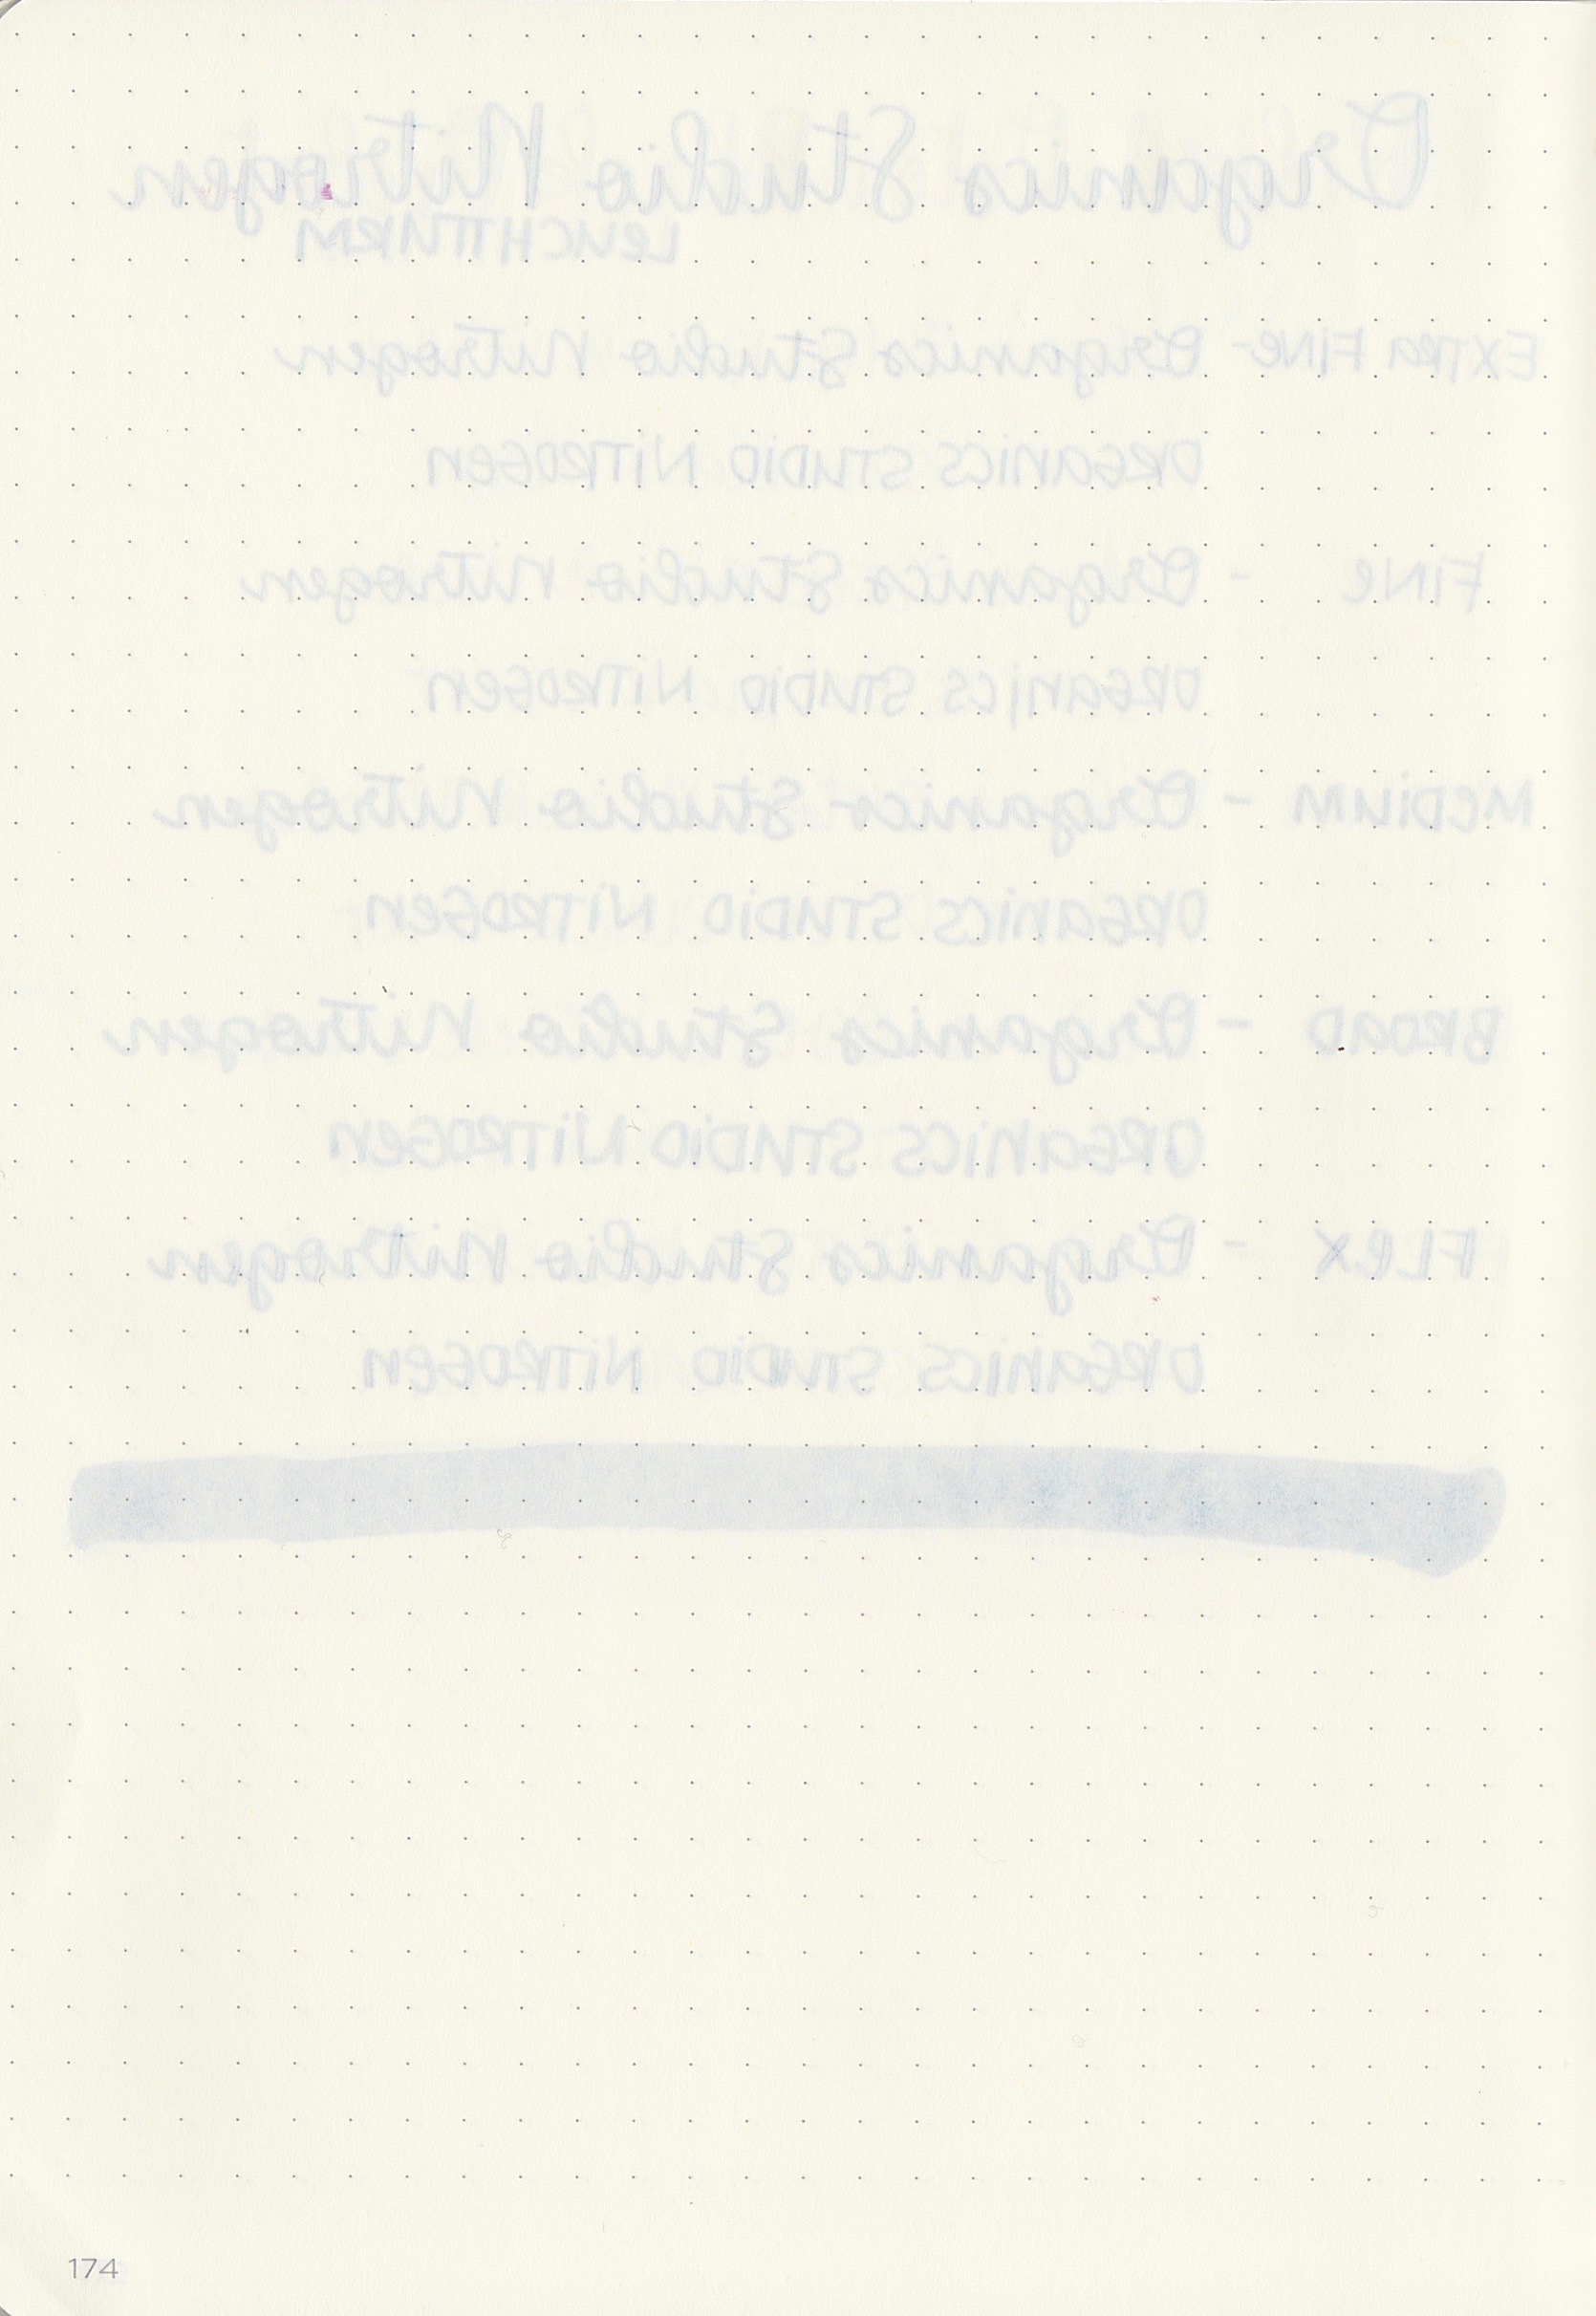 Organics Studio Nitrogen
LEUCHTTURM
EXTRA FINE - Organics Studio Nitrogen
ORGANICS STUDIO NITROGEN
FINE - Organics Studio Nitrogen
ORGANICS STUDIO NITROGEN
MEDIUM - Organics Studio Nitrogen
ORGANICS STUDIO NITROGEN
BROAD - Organics Studio Nitrogen
ORGANICS STUDIO NITROGEN
FLEX - Organics Studio Nitrogen
ORGANICS STUDIO NITROGEN
174